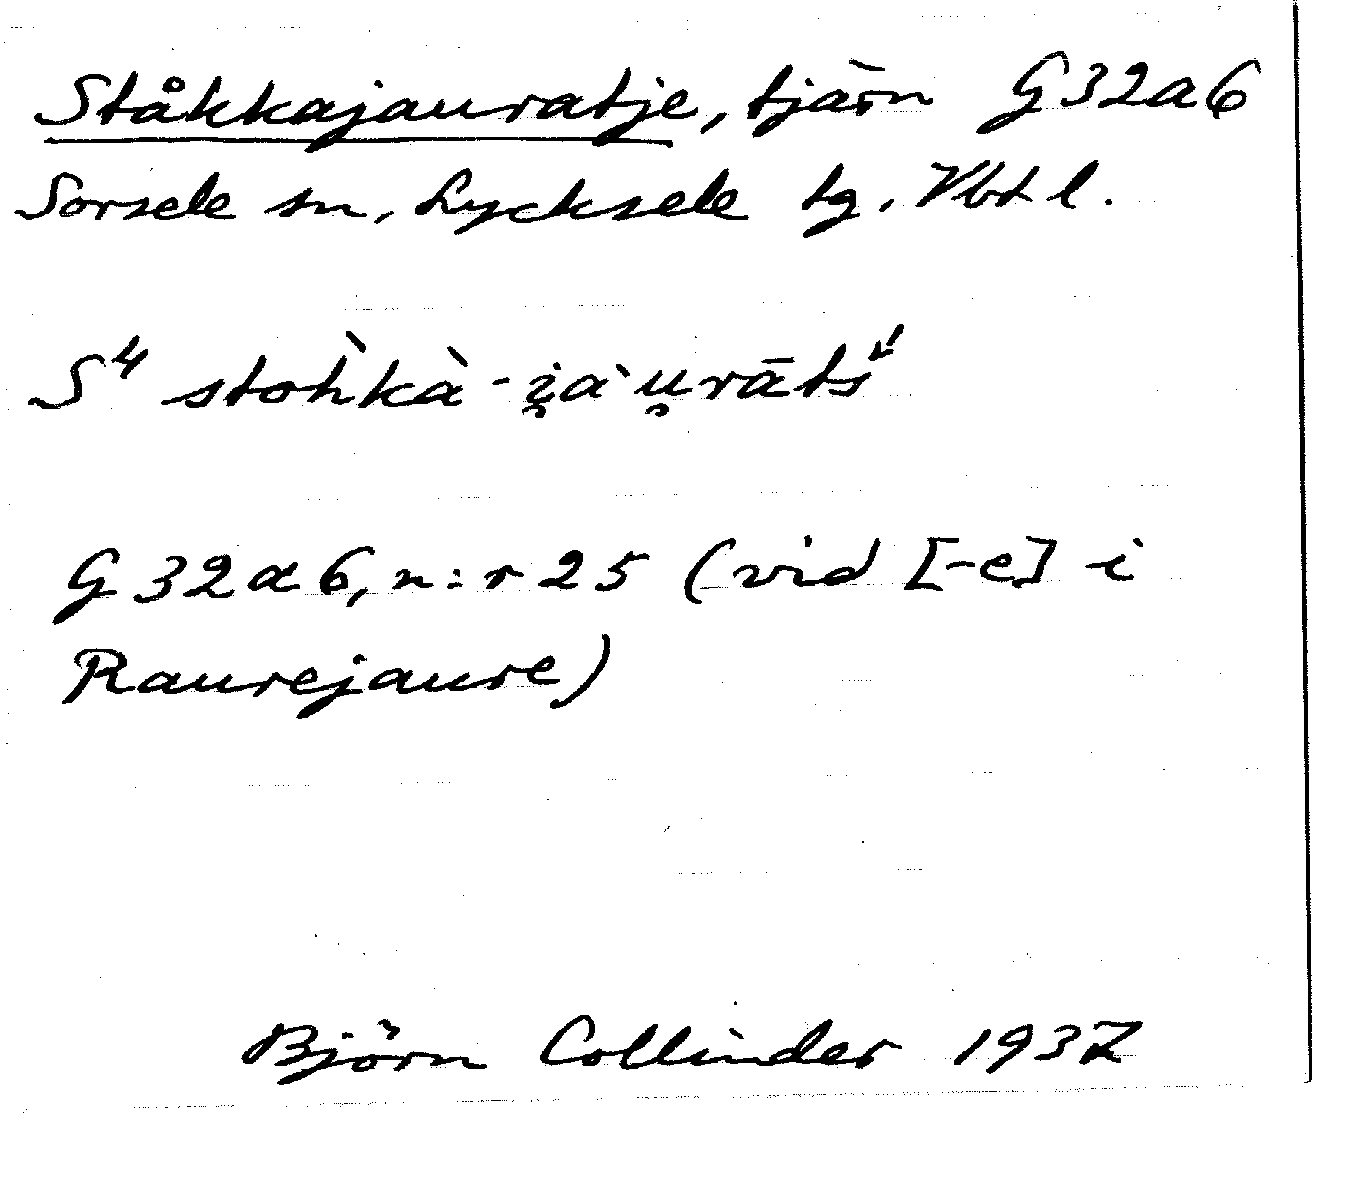 Ståkkajauratje, tjärn G32a6
Sorsele sn, Lycksele tg. Vbtl.
S⁴ stoh̀kà-i̯a`u̯rāts
G32a6, n:r 25 (vid [-e] i
Raurejaure)
Björn Collinder 1937